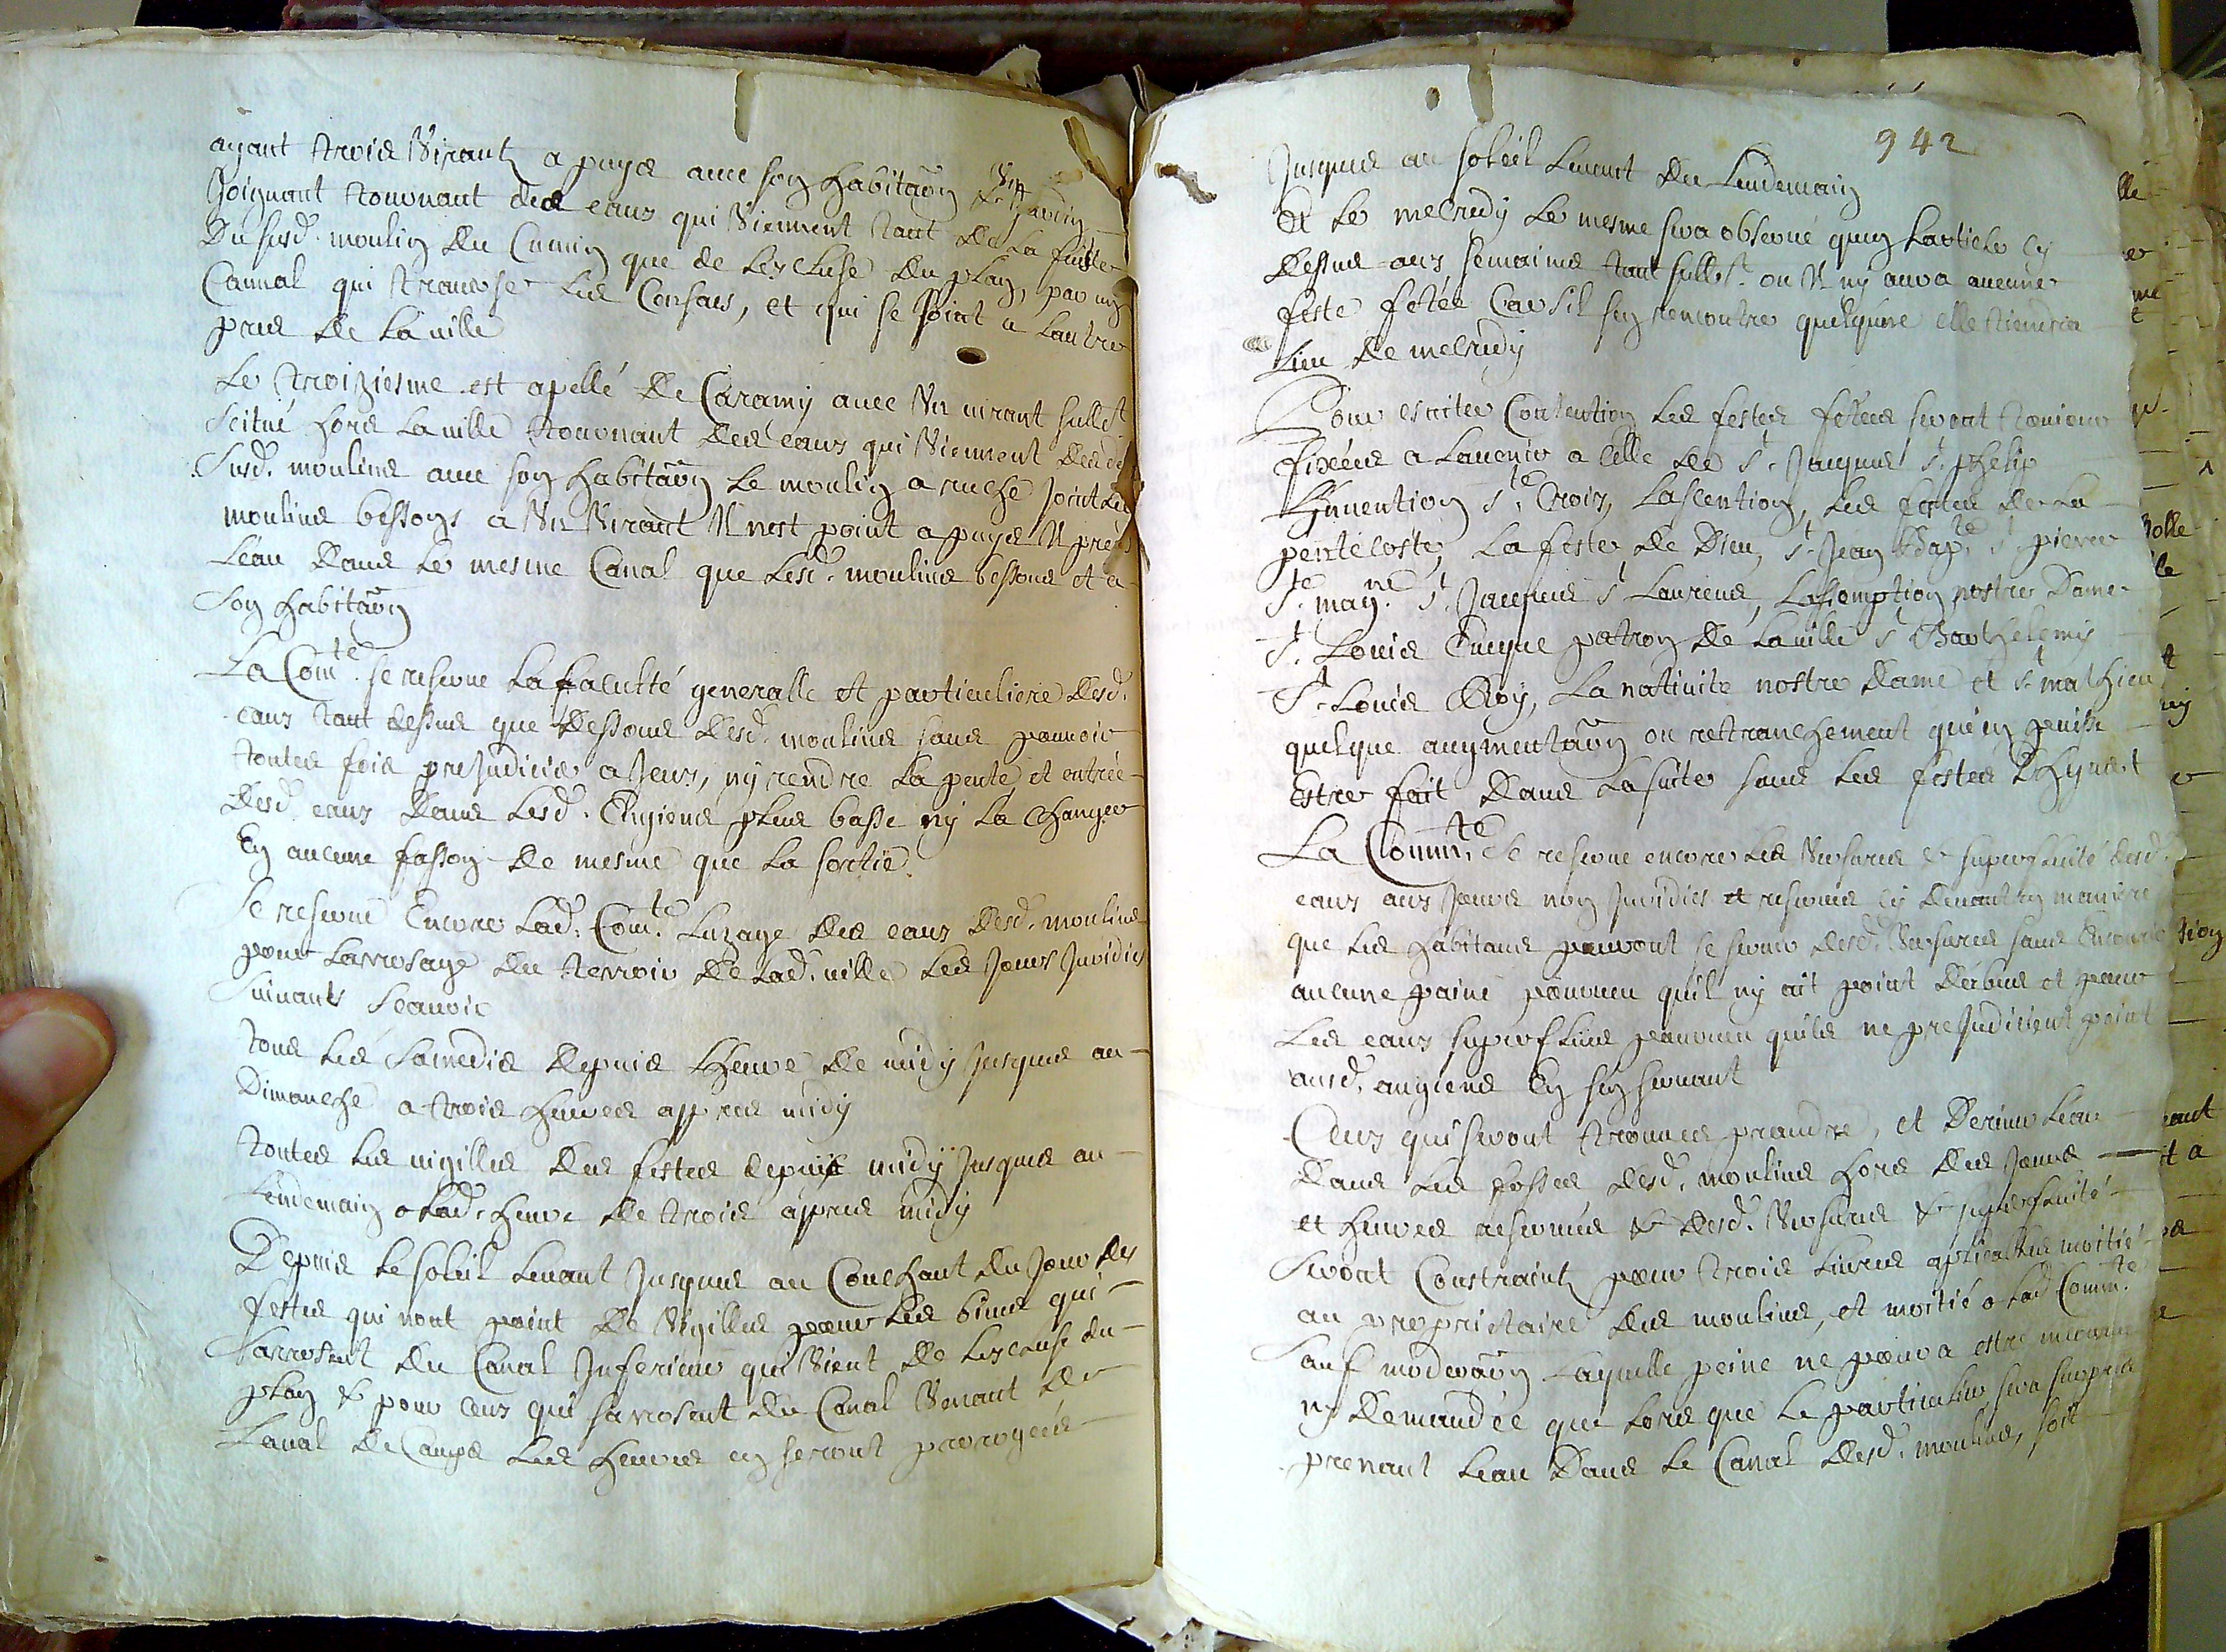 ayant trois virants a payes avec son habitaôn & jardin
joignant tournant des eaux qui viennent tant de la fuitte
du susd. moulin du Cumin que de lescluse du plan, par un
Cannal qui traverse les Consacs, et qui se joint a lautre
pres de la ville
Le troiziesme est apellé de Caramy avec un virant sullet
scitué hors la ville tournant des eaux qui viennent des
susd. moulins avec son habitaôn le moulin a ruche joint les
moulins bessons a un virant Il nest point a payes Il prend
léau dans le mesme Canal que lesd. moulins bessons et a
son habitaôn
La Com.té se reserve la facultté generalle et particuliere desd.
eaux tant dessus que dessous desd. moulins sans pouvoir
toutes fois prejudicier a jeux, ny rendre la pente, et entrée
desd. eaux dans lesd. Engiens plus basse ny la changer
En aucune fasson de mesme que la sortie.
Se reserve Encore lad. Com.té Luzage des eaux desd. moulins
pour Larrosage du terroir de lad. ville les jours juridics
suivants scavoir
tous les samedis depuis Lheure de midy jusques au
Dimanche a trois heures appres midy
toutes les vigilles des festes depuis midy jusques au
Lendemain a lad. heure de trois appres midy
Depuis le soleil levant jusques au Couchant du jour des
festes qui nont point de vigilles pour les biens qui
sarrosent du Canal Inferieur qui vient de lescluse du
plan & pour ceux qui sarrosent du Canal venant de
Lanal de Camps les heures en seront prorogées
942
Jusques au soleil levant du Lendemain
Et le mecredy le mesme sera observé quen larticle cy
dessus aux semaines tant sullet. ou Il ny aura aucune
feste fetée Car sil sen rencontre quelquune elle tiendra
Lieu de mecredy
Pour esviter Contention les festes fetées seront toujours
fixées a lavenir a celle de St. Jacques St. phelip
Linvention Ste. Croix, Lascention, les festes de la
pentecoste, La feste de Dieu, St. Jean Bap.te St. pierre
Ste. mag.ne St. Jacques St Laurens, Lassomption nostre Dame
St. Louis Eveque patron de la ville St Barthelemy
St. Louis Roy, La nativite nostre Dame et St. mathieu
quelque augmentaôn ou rettranchement quien puisse
Estre fait dans la suite sans les festes Dhyvert
La Comm.té Se reserve encore les versures & superfluité desd.
eaux aux jours non juridics et reservés cy devant en maniere
que les habitans pourront se servir desd. versures sans Encourir
aucune paine pourveu quil ny ait point dabus et pour
Les eaux superflues pourveu quils ne prejudicient point
ausd. angiens En sen servant
Ceux qui seront trouvés prandre, et Deriver léau
dans les fosses desd. moulins hors des jours
et heures reservées & desd. versures & superfluité
seront Constraints pour trois Livres aplicables moitié
au proprietaire des moulins, et moitié a lad. Comm.té
sauf moderaôn Laquelle peine ne pourra estre
ny Demandée que lors que le particulier sera surpris
prenant leau Dans le Canal desd. moulins, soit